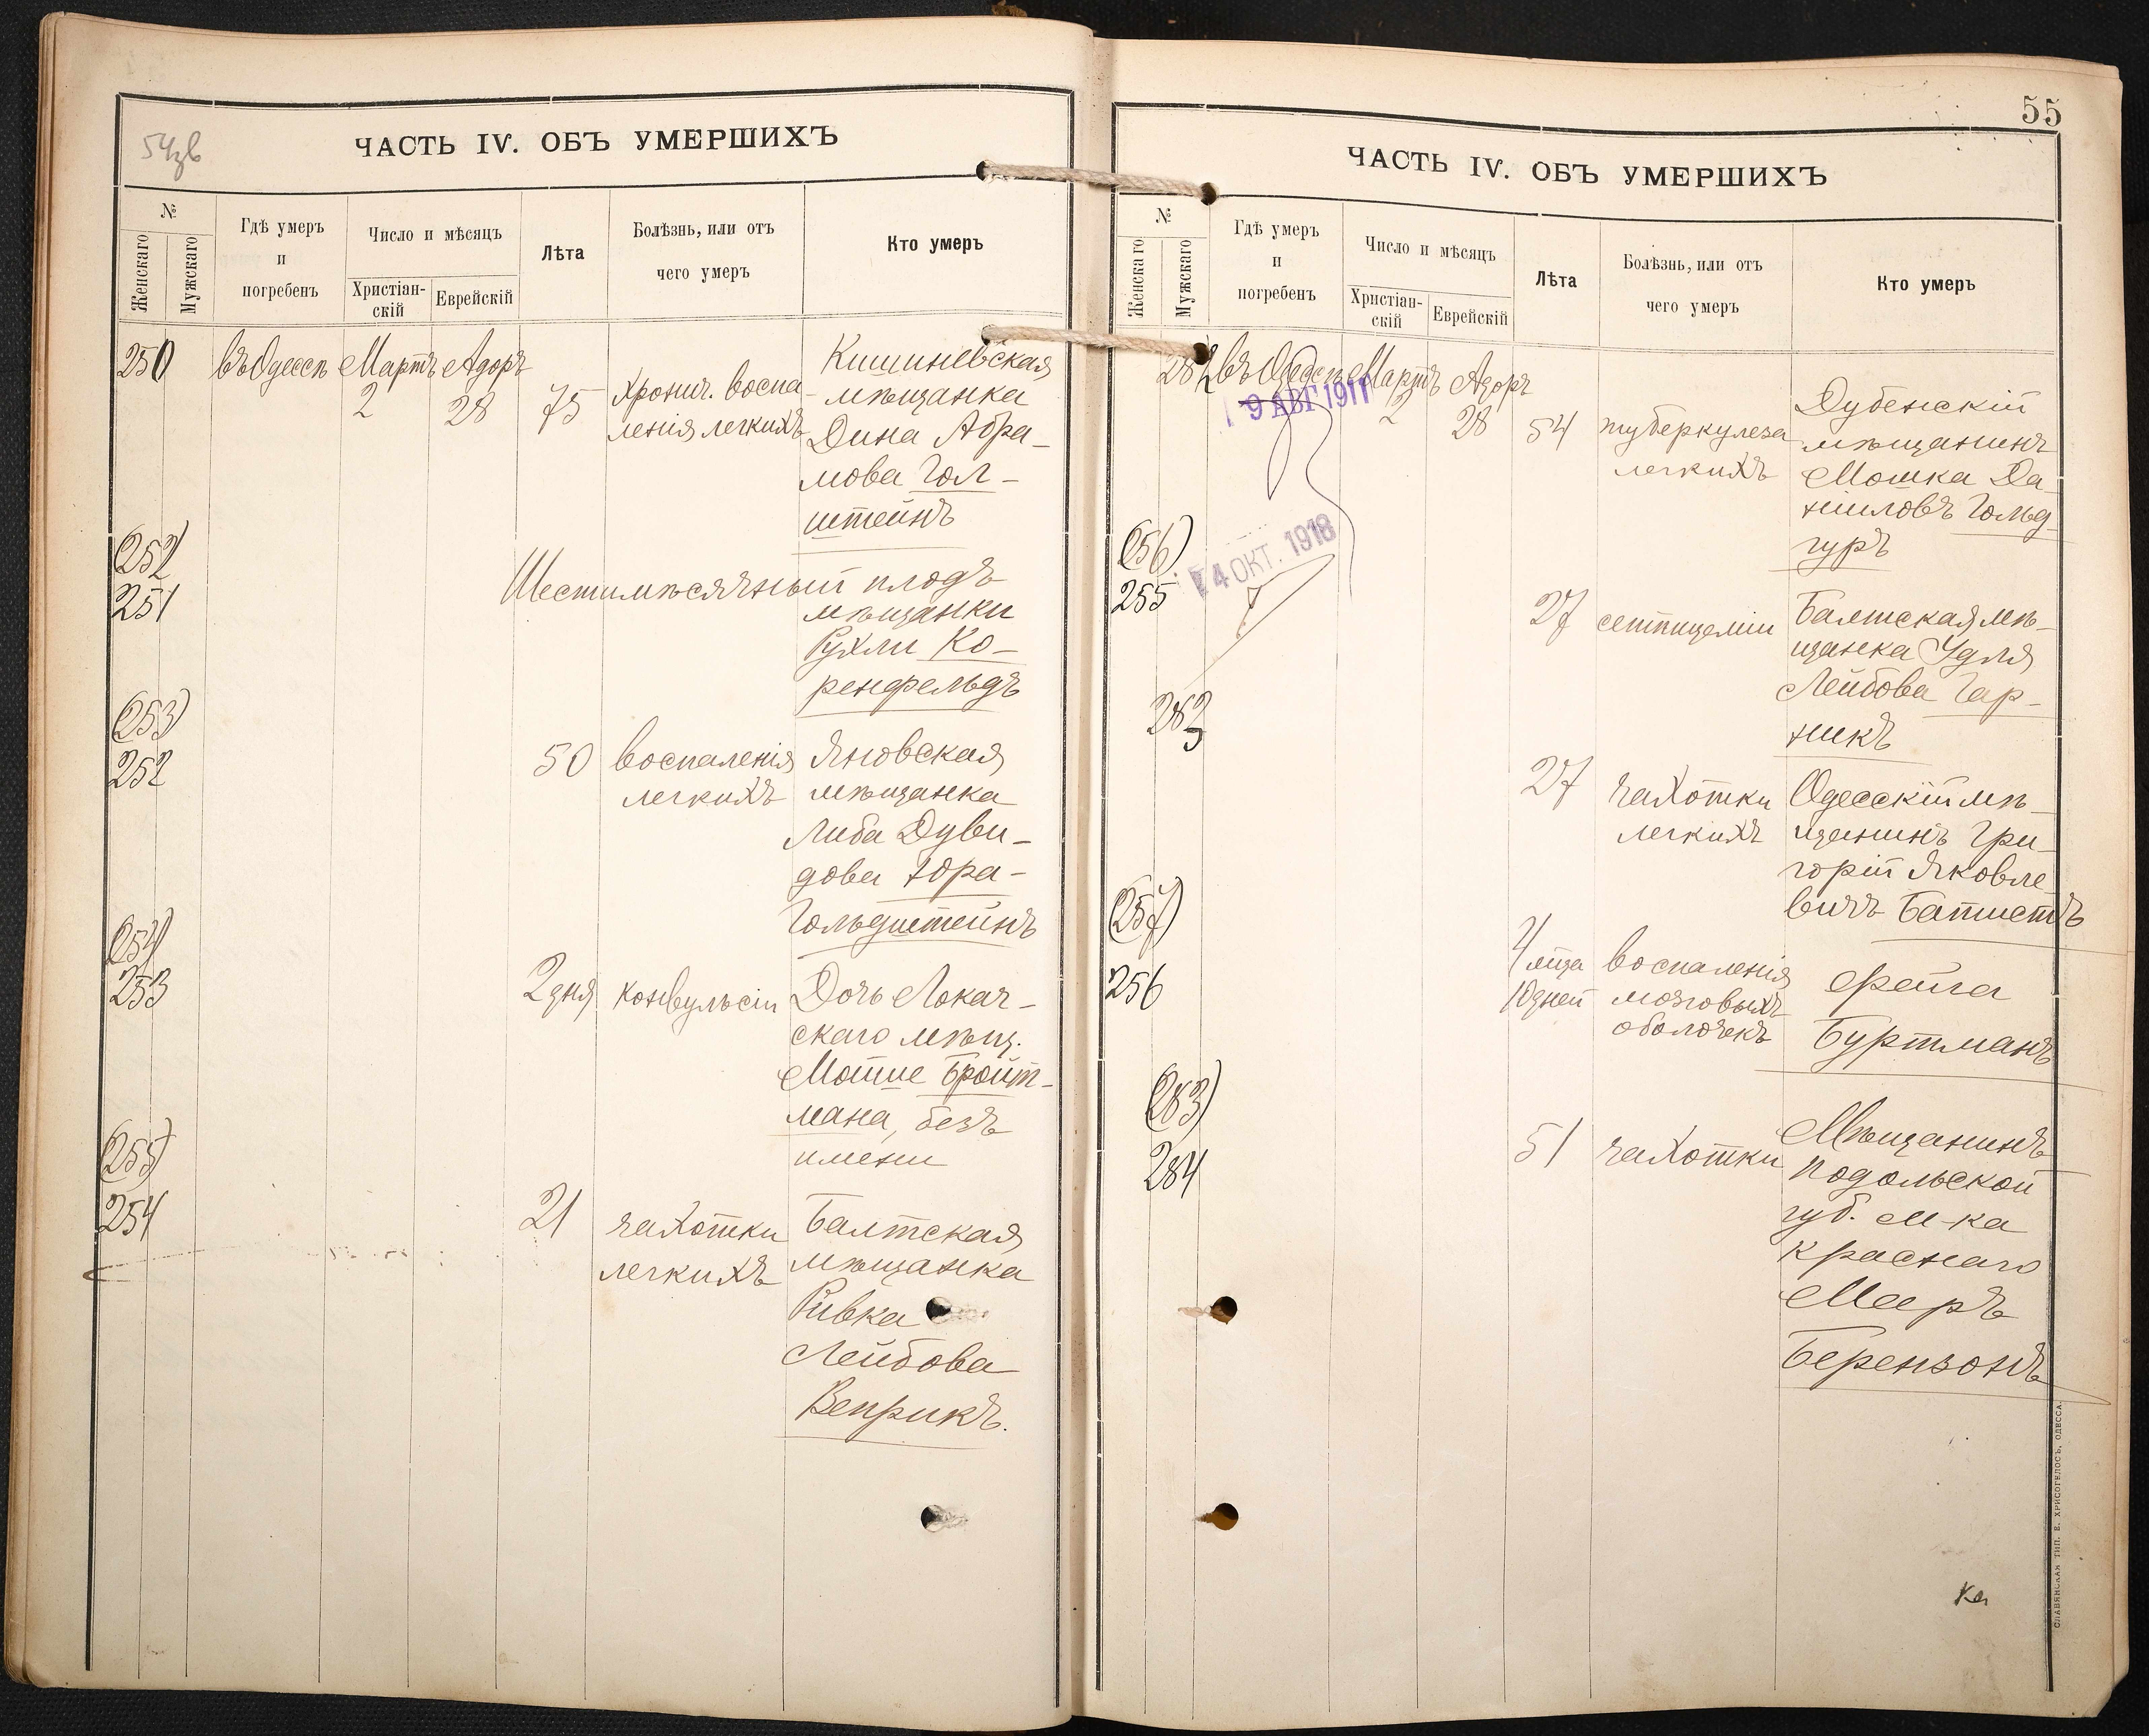 54зв
ЧАСТЬ IV. ОБЪ УМЕРШИХЪ
№
Женскаго
Мужскаго
Гдѣ умеръ
и
погребенъ
Число и мѣсяцъ
Христіан-
скій
Еврейскій
Лѣта
Болѣзнь, или отъ
чего умеръ
Кто умеръ
250 въ Одессѣ Мартъ Адоръ
2 28 75 хронич. воспа-
ленія легкихъ
Кишиневская
мѣщанка
Дина Абра-
мова Гол-
штейнъ
(252)
251
Шестимѣсячный плодъ
мѣщанки
Рухли Ко-
ренфельдъ
(253)
252
50 воспаленія
легкихъ
Яновская
мѣщанка
Либа Дуви-
дова Юра-
Гольдштейнъ
(254)
253
2 дня конвульсіи
Дочь Локач-
скаго мѣщ.
Мошше Бройт-
мана, безъ
имени
(255)
254
21 чахотки
легкихъ
Балтская
мѣщанка
Ривка
Лейбова
Веприкъ.
55
ЧАСТЬ IV. ОБЪ УМЕРШИХЪ
№
Женскаго
Мужскаго
Гдѣ умеръ
и
погребенъ
Число и мѣсяцъ
Христіан-
скій
Еврейскій
Лѣта
Болѣзнь, или отъ
чего умеръ
Кто умеръ
282 въ Одессѣ Мартъ Адоръ
9 АВГ 1911
2 28 54 туберкулеза
легкихъ
Дубенскій
мѣщанинъ
Мошка Да-
ниловъ Гольд-
гуръ
(256)
255
4 ОКТ. 1918
27 септицеміи
Балтская мѣ-
щанка Удля
Лейбова Гар-
никъ
283
27 чахотки
легкихъ
Одесскій мѣ-
щанинъ Гри-
горій Яковле-
вичъ Баптистъ
(257)
256
4 мѣца
10 дней
воспаленія
мозговыхъ
оболочекъ
Фейга
Буртманъ
(283)
284
51 чахотки
Мѣщанинъ
Подольской
губ. м-ка
Краснаго
Мееръ
Берензонъ
СЛАВЯНСКАЯ ТИП. Е. ХРИСОГЕЛОСЪ, ОДЕССА.